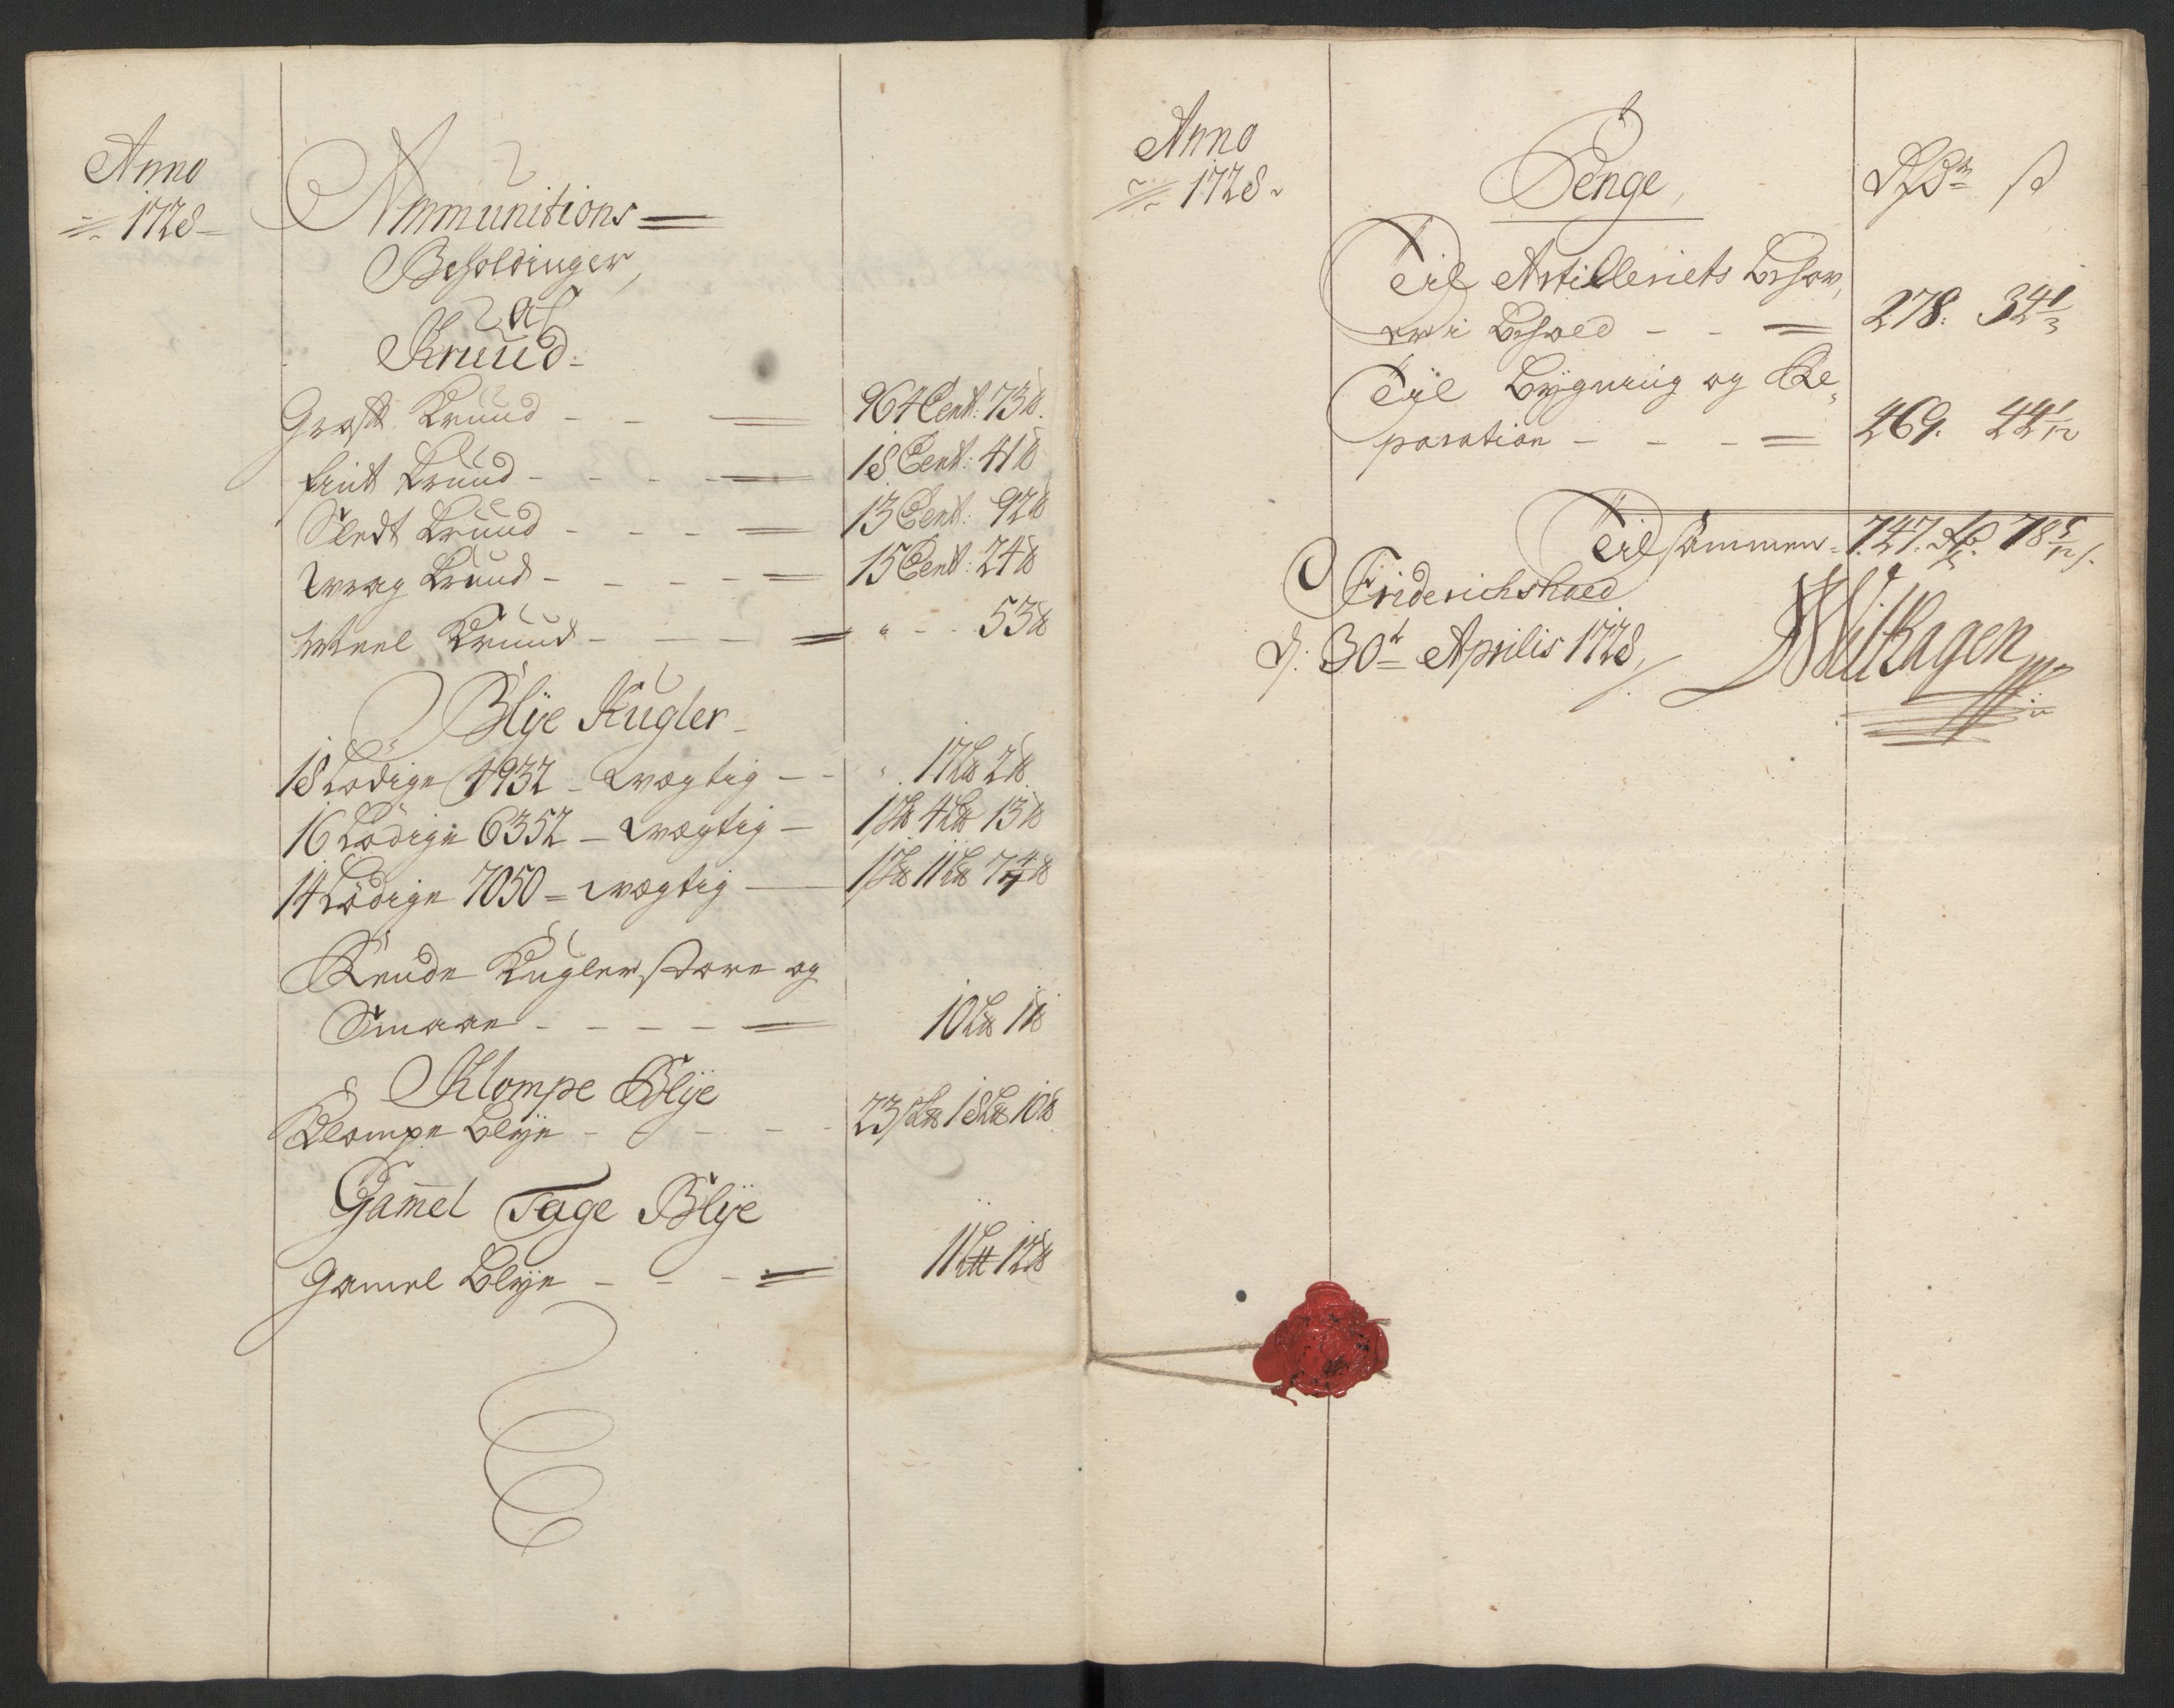 Anno
1728
Ammunitions
Beholdinger
af
Kruud
Groft Kruud 964 Cent: 73 ℔
fint Kruud 18 Cent: 41 ℔
Sledt Kruud 13 Cent: 92 ℔
wrag Kruud 15 Cent: 24 ℔
Meel Kruud " 53 ℔
Blÿe Kugler
18 Lødige 4932 - wægtig " 17 L℔ 2 ℔
16 Lødige 6352 - wægtig 1 S℔ 4 L℔ 13 ℔
14 Lødige 7050 - wægtig 1 S℔ 11 L℔ 7 4/7 ℔
Kugler store og
Smaae 10 L℔ 1 ℔
Klompe Blÿe
Klompe Blÿe 23 S℔ 18 L℔ 10 ℔
Gam̅el Tage Blÿe
Gamel Blÿe 11 L℔ 12 ℔
Anno
1728
Penge
Til Artilleriets Behov,
er i Behold 278: 34 1/3
Til Bÿgning og Re,
paration 469. 44 1/12
Tilsammen 747. 78 5/12 s.
Friderichshald
d: 30te Aprilis 1728